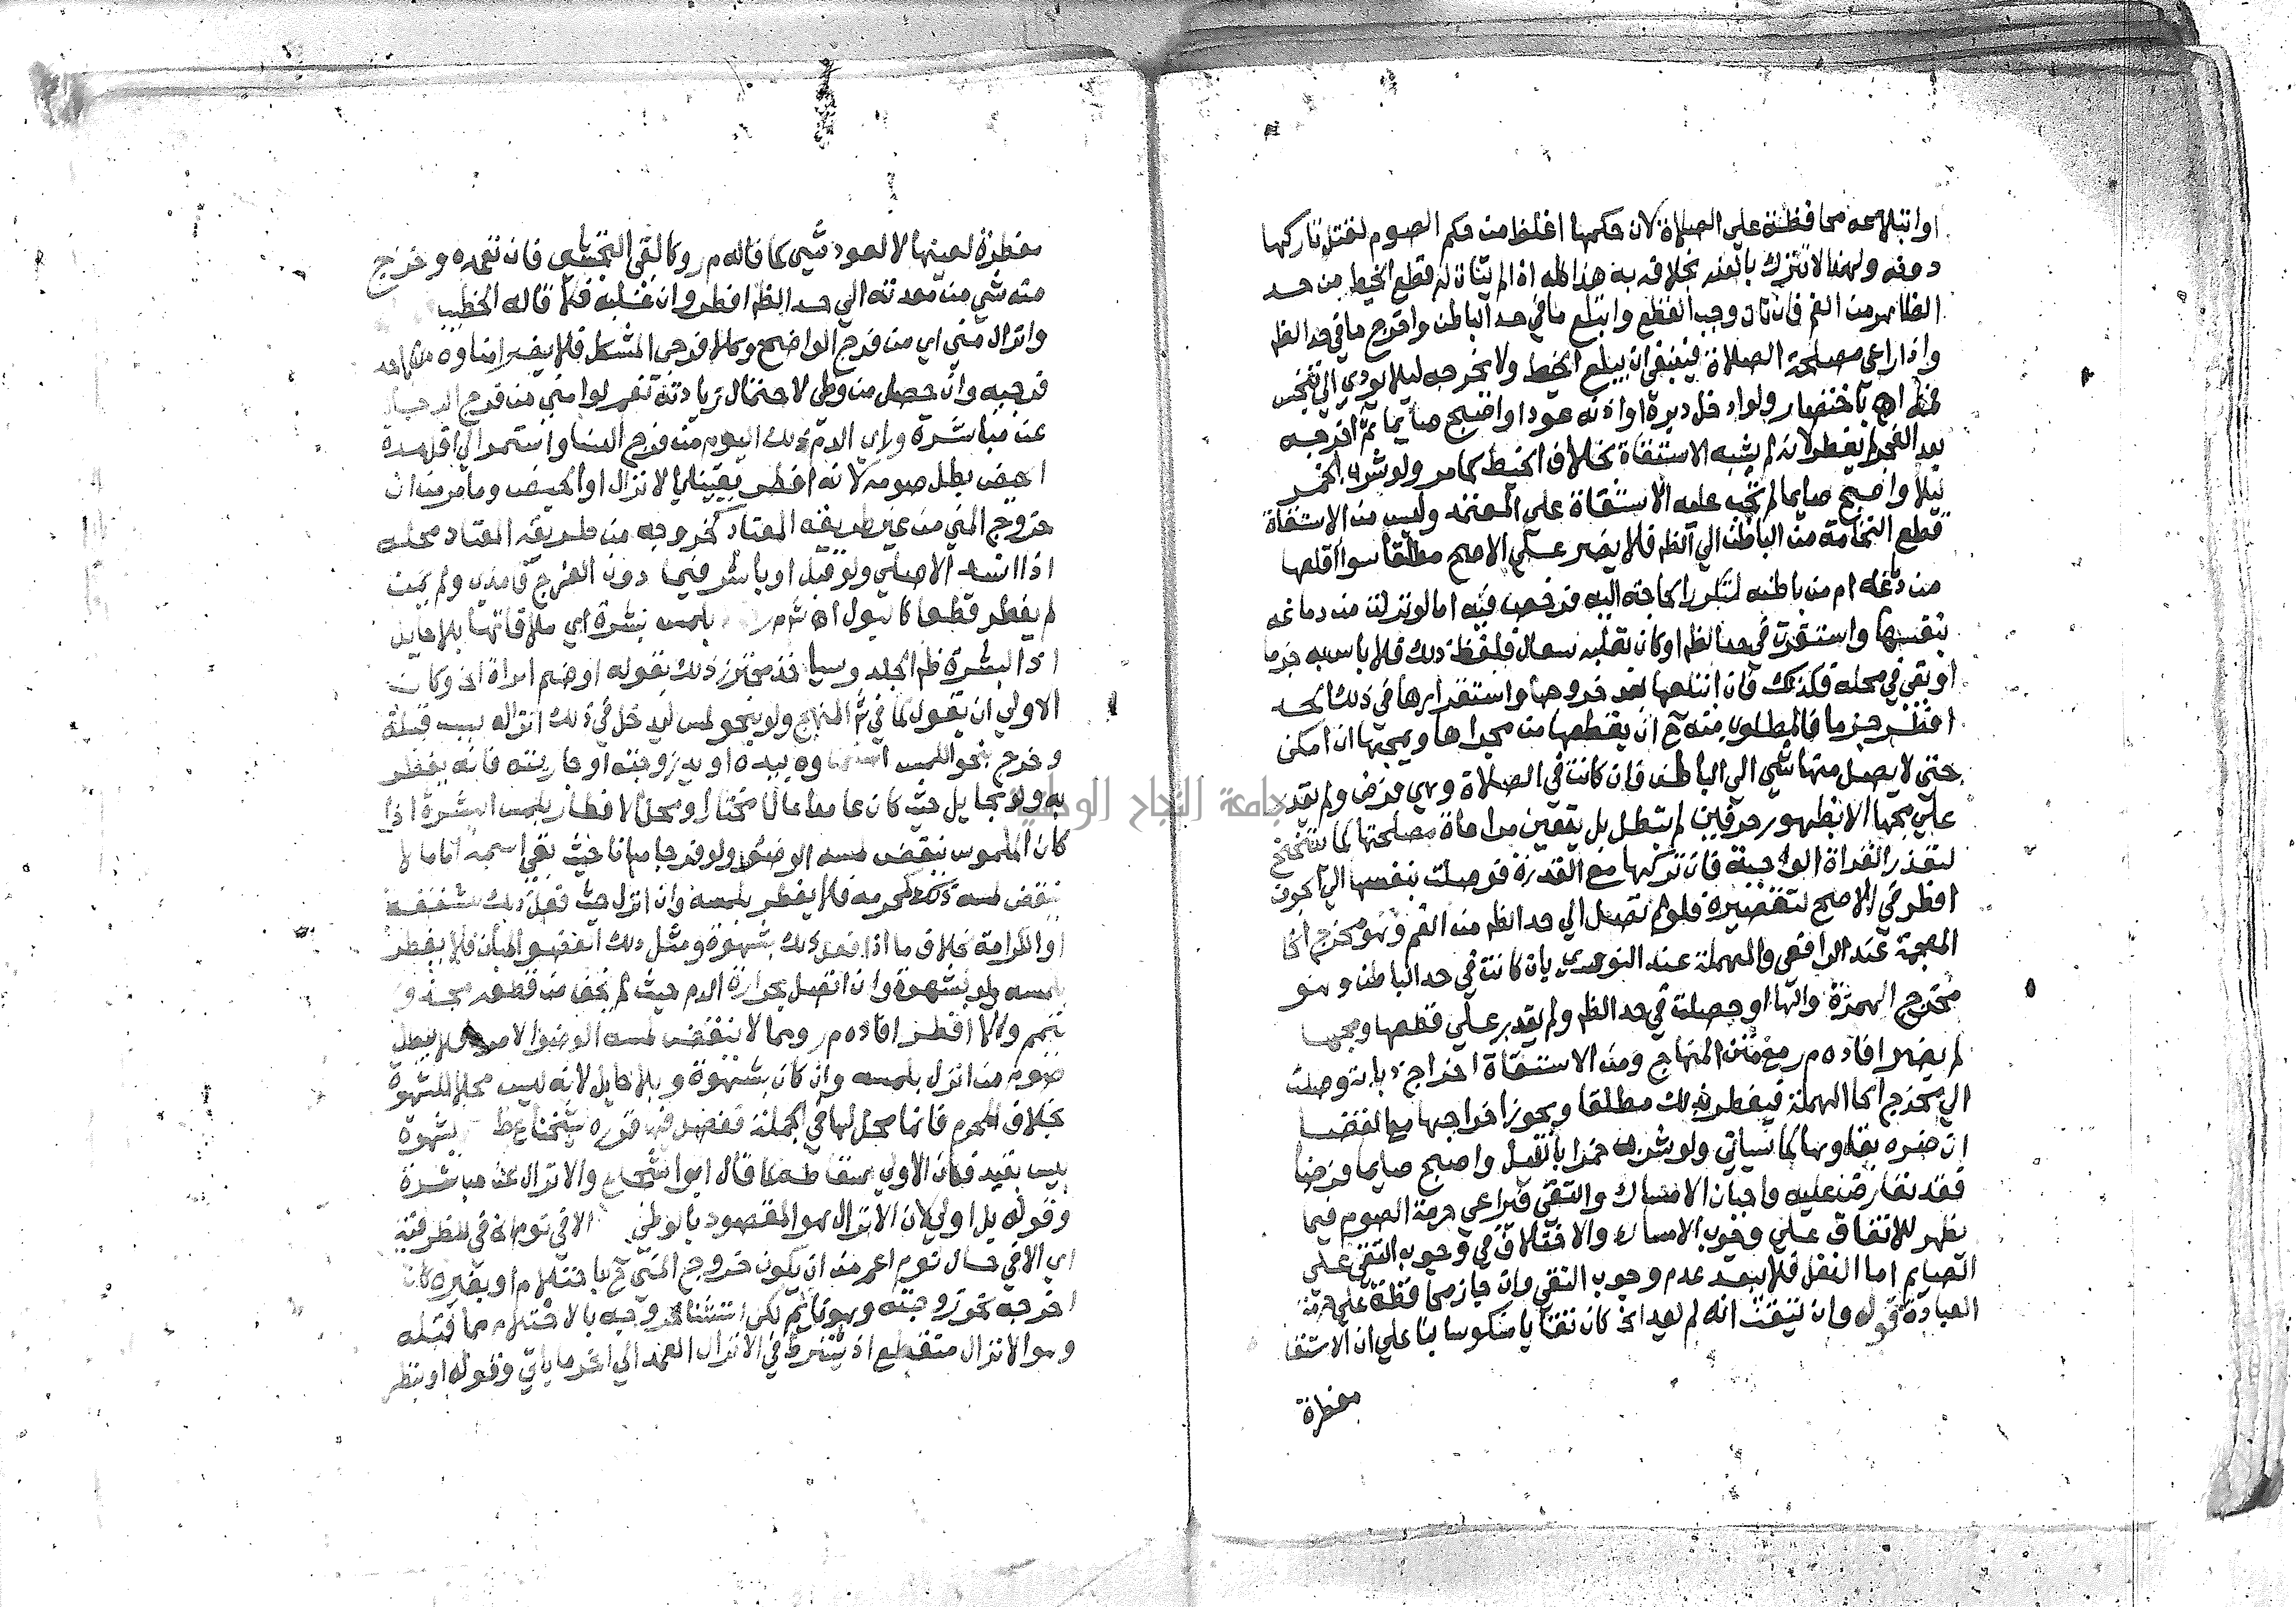 او ابتلاعه محافظة علي الصلاة لان حكمها اغلظ من حكم الصوم لقتل تاركها
دونه ولهذا لا تترك بالعذر بخلافه به هذا كله اذا لم يتات له قطع الخيط من حد
الظاهر من الفم فان تات وجب القطع وابتلع ما في حد الباطن واخرج ما في حد الظ
واذا راعي مصلحة الصلاة فينبغي ان يبلع الخيط ولا يخرجه ليلا يودي الي تنجس
فمه اه باختصار ولو ادخل دبره او اذنه عودا واصبح صايما ثم اخرجه
بعد الفجر لم يفطر لانه لم يشبه الاستقاة بخلاف الخيط كما مر ولو شرب الخمر
ليلا واصبح صايما لم تجب عليه الاستقاة علي المعتمد وليس من الاستقاة
قطع النخامة من الباطن الي الظ فلا يضر علي الاصح مطلقا سوا اقلعها
من دماغه ام من باطنه لتكرر الحاجة اليه فرخص فيه اما لو نزلت من دماغه
بنفسها واستقرت في حد الظ او كان بغلبه سعال فلفظ ذلك فلا باس به جزما
او بقي في محله فكذلك فان ابتلعها بعد خروجها واستقرارها في ذلك الحد
افطر جزما فالمطلوب منه ح ان يقطعها من مجراها ويمجها ان امكن
حتي لا يصل منها شي الي الباطن فان كانت في الصلاة وهي فرض ولم يقدر
علي مجها الا بظهور حرفين لم تبطل بل يتعين مراعاة مصلحتها كما يتنحنح
لتعذر القراة الواجبة فان تركها مع القدرة فوصلت بنفسها الي الجوف
افطر في الاصح لتقصيره فلو لم تصل الي حد الظ من الفم وهو مخرج الخا
المعجمة عند الرافعي والمهملة عند النووي بان كانت في حد الباطن وهو
مخرج الهمزة والها او حصلت في حد الظ ولم يقدر علي قطعها ومجها
لم يضر افاده م ر مع متن المنهاج ومن الاستقاة اخراج ذبابة وصلت
الي مخرج الحا المهملة فيفطر بذلك مطلقا ويجوز اخراجها مع القضا
ان ضره بقاوها كما سياتي ولو شرب خمرا بالليل واصبح صايما فرضا
فقد تعارض عليه واجبان الامساك والتقي فيراعي حرمة الصوم فيما
يظهر للاتفاق علي وجوب الامساك والاختلاف في وجوب التقي علي
الصايم اما النفل فلا يبعد عدم وجوب التقي وان جاز محافظة علي حرمة
العبادة قوله وان تيقنت انه لم يعد الخ كان تقايا منكوسا بنا علي ان الاستقا
مفطرة
مفطرة لعينها لا لعود شي كما قاله م ر وكالقي التجشي فان تعمده وخرج
منه شي من معدته الي حد الظ افطر وان غلبه فلا قاله الخطيب
وانزال مني اي من فرج الواضح وكلا فرجي المشكل فلا يضر امناوه من احد
فرجيه وان حصل من وطي لاحتمال زيادته نعم لو امني من فرج الرجال
عن مباشرة وراي الدم ذلك اليوم من فرج النسا واستمر الي اقل مدة
الحيض بطل صومه لانه افطر يقينا بالانزال او الحيض وما مر من ان
خروج المني من غير طريقه المعتاد كخروجه من طريقه المعتاد محله
اذا انسد الاصلي ولو قبل او باشر فيما دون الفرج فامذي ولم يمن
لم يفطر قطعا كالبول اه بلمس بشرة اي ملاقاتها بلا حايل
اذ البشرة ظ الجلد وسياخذ محترز ذلك بقوله او ضم امراة الخ وكان
الاولي ان يقول كما في المنهاج ولو بنحو لمس ليدخل في ذلك انزاله بسبب قبلة
وخرج بنحو اللمس استمناوه بيده او بيد زوجته او جاريته فانه يفطر
به ولو بحايل حيث كان عامدا عالما مختارا ومحل الافطار بلمس البشرة اذا
كان الملموس ينقض لمسه الوضو ولو فرجا مبانا حيث بقي اسمه اما ما لا
ينقض لمسه كمحرمه فلا يفطر بلمسه وان انزل حيث فعل ذلك شفقة
او الكرامة بخلاف ما اذا فعل ذلك بشهوة ومثل ذلك العضو المبان فلا يفطر
بلمسه ولو بشهوة وان اتصل بحرارة الدم حيث لم يخف من قطعه محذور
تيمم والا افطر افاده م ر ومما لا ينقض لمسه الوضو الامرد فلا يبطل
صوم من انزل بلمسه وان كان بشهوة وبلا حايل لانه ليس محلا للشهوة
بخلاف المحرم فانها محل لها في الجملة ففصل فيها قرره شيخنا ع ط بشهوة
ليس بقيد فكان الاولي اسقاطه كما قال ابو شجاع والانزال عن مباشرة
وقوله بل اولي لان الانزال هو المقصود بالوطي الا في نوم اه في للظرفية
اي الا في حال نوم اعم من ان يكون خروج المني ح باحتلام او بغيره كان
اخرجه نحو زوجته وهو نايم لكن استثنا خروجه بالاحتلام مما قبله
وهو الانزال منقطع اذ يشترط في الانزال العمد الي اخر ما ياتي وقوله او بنظر
جامعة النجاح الوطنية